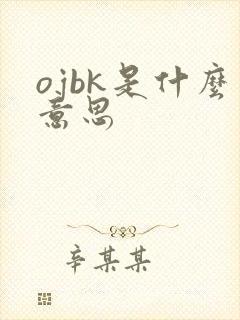 ojbk是什麽
意思
辛某某